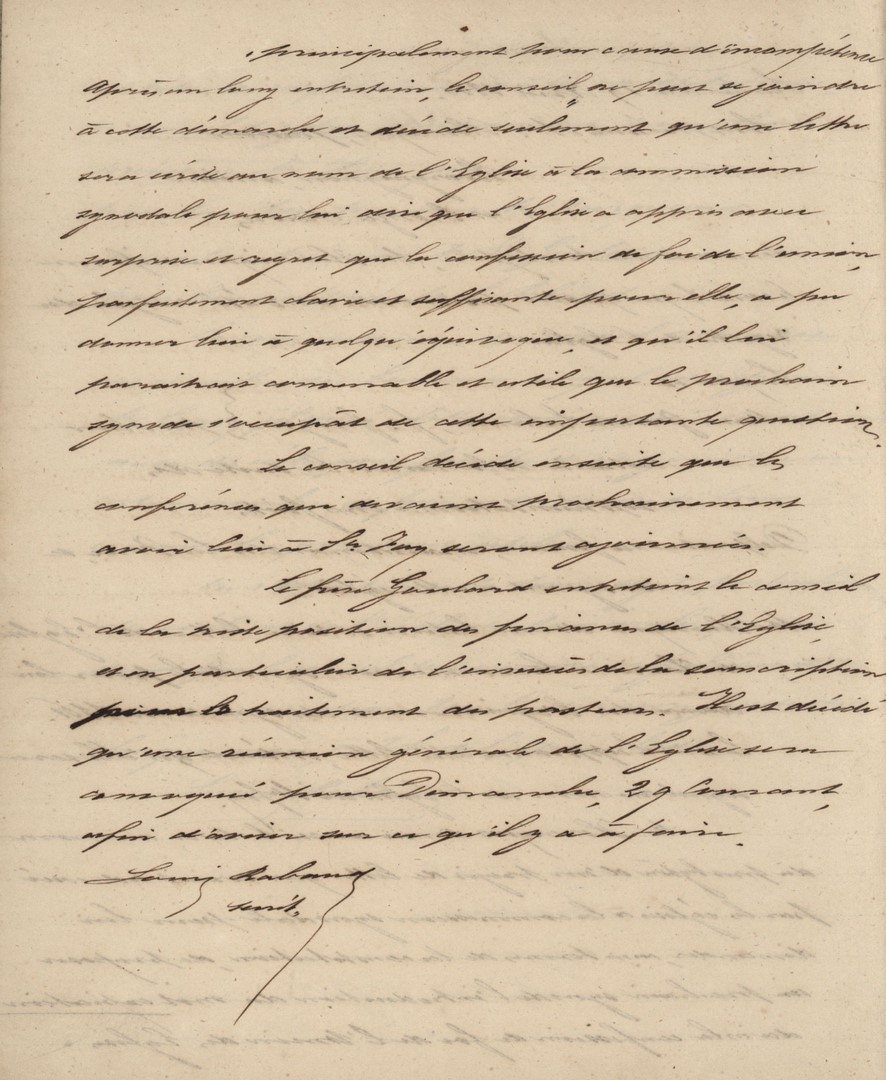 principalement pour cause d'incompétence
Après un long entretien, le conseil ne peut se joindre
à cette démarche et décide seulement qu'une lettre
sera écrite au nom de l'Eglise à la commission
synodale pour lui dire que l'Eglise a appris avec
surprise et regret que la confession de foi de l'union,
parfaitement claire et suffisante pour elle, a pu
donner lieu à quelqu'équivoque, et qu'il lui
paraitrait convenable et utile que le prochain
synode s'occupât de cette importante question.
Le conseil décide ensuite que les
conférences qui devaient prochainement
avoir lieu à Ste Foy seront ajournées.
Le frère Goulard entretient le conseil
de la triste position des finances de l'Eglise,
et en particulier de l'insuccès de la souscription
pour le traitement des pasteurs. Il est décidé
qu'une réunion générale de l'Eglise sera
convoquée pour Dimanche, 29 Courant,
afin d'aviser sur ce qu'il y a à faire.
Louis Rabaud
secrét.